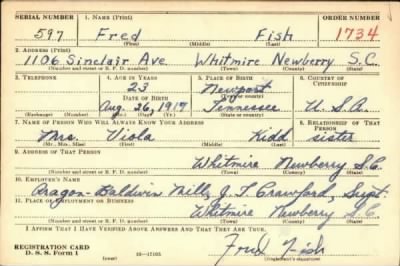 SERIAL NUMBER 1. NAME (Print) ORDER NUMBER
597 Fred Fish 1734
(First) (Middle) (Last)
2. ADDRESS (Print)
1106 Sinclair Ave Whitmire Newberry S.C.
(Number and street or R. F. D. number) (Town) (County) (State)
3. TELEPHONE 4. AGE IN YEARS 5. PLACE OF BIRTH 6. COUNTRY OF CITIZENSHIP
23 Newport
DATE OF BIRTH (Town or county)
Aug. 26, 1917 Tennessee U.S.A.
(Exchange) (Number) (Mo.) (Day) (Yr.) (State or country)
7. NAME OF PERSON WHO WILL ALWAYS KNOW YOUR ADDRESS 8. RELATIONSHIP OF THAT PERSON
Mrs. Viola Kidd sister
(Mr., Mrs., Miss) (First) (Middle) (Last)
9. ADDRESS OF THAT PERSON
Whitmire Newberry S.C.
(Number and street or R. F. D. number) (Town) (County) (State)
10. EMPLOYER'S NAME
Aragon-Baldwin Mills, J. T. Crawford, Supt.
11. PLACE OF EMPLOYMENT OR BUSINESS
Whitmire Newberry S.C.
(Number and street or R. F. D. number) (Town) (County) (State)
I AFFIRM THAT I HAVE VERIFIED ABOVE ANSWERS AND THAT THEY ARE TRUE.
REGISTRATION CARD
D. S. S. Form 1 16—17105 Fred Fish
(Registrant's signature)